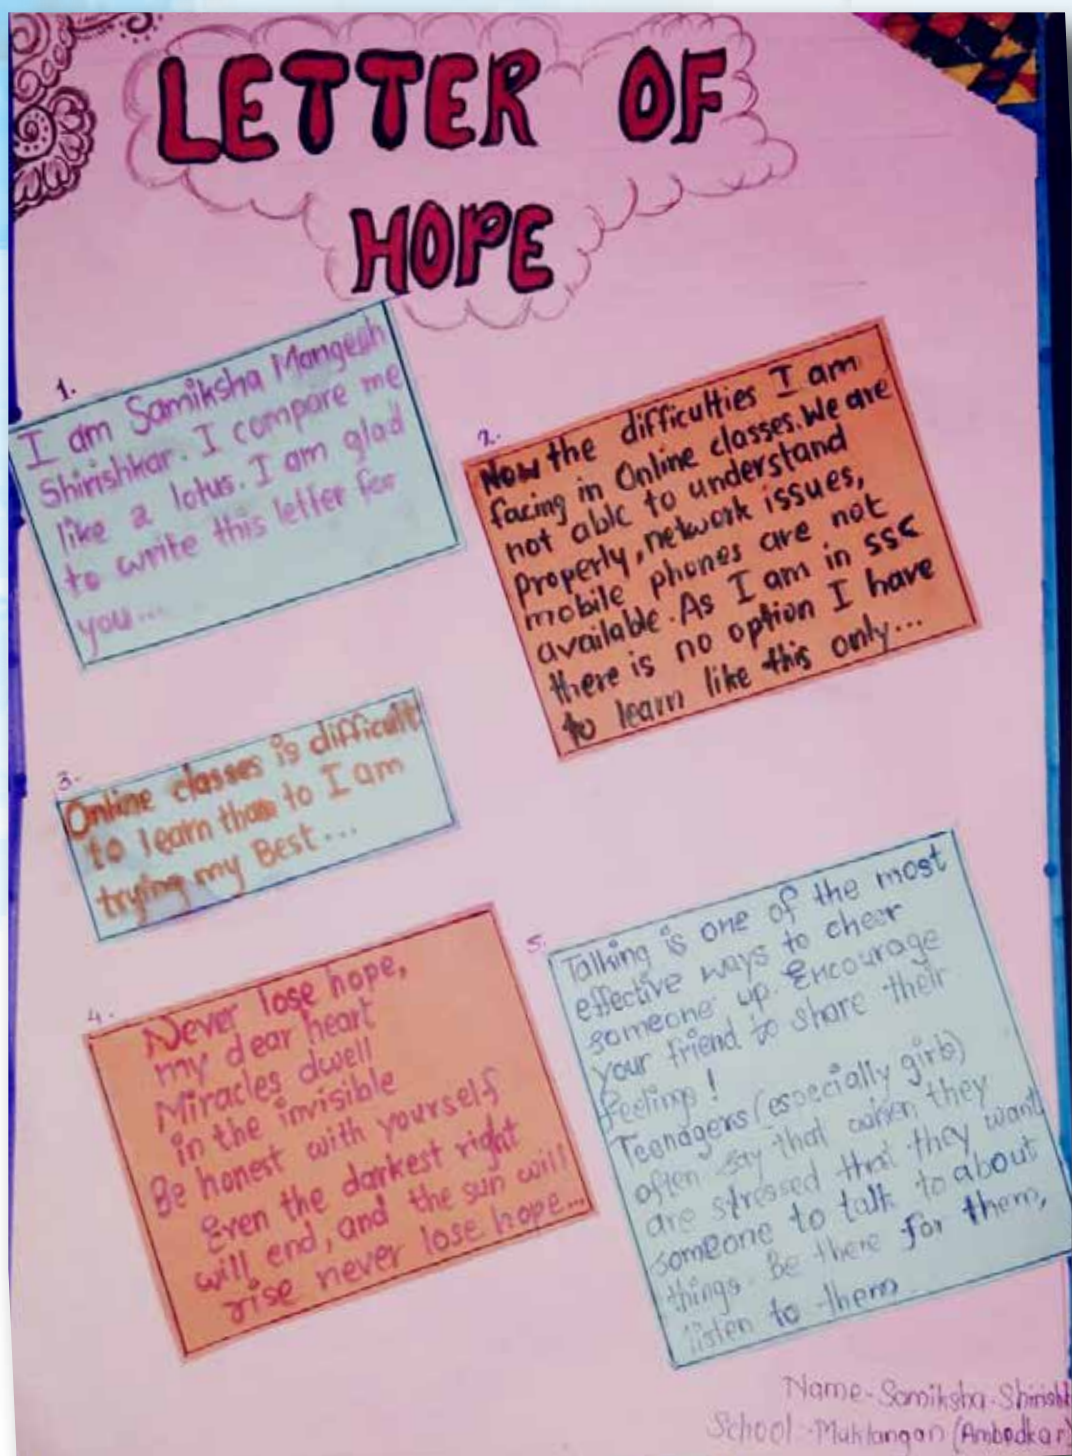 LETTER OF
HOPE
1.
I am Samiksha Mangesh
Shirishkar. I compare me
like a lotus. I am glad
to write this letter for
you...
2.
Now the difficulties I am
facing in Online classes. We are
not able to understand
properly, network issues,
mobile phones are not
available. As I am in ssc
there is no option I have
to learn like this only...
3.
Online classes is difficult
to learn than to I am
trying my Best...
4.
Never lose hope,
my dear heart
Miracles dwell
in the invisible
Be honest with yourself
Even the darkest right
will end, and the sun will
rise never lose hope...
5.
Talking is one of the most
effective ways to cheer
someone up. Encourage
your friend to share their
feelings!
Teenagers (especially girls)
often say that when they
are stressed that they want
someone to talk to about
things. Be there for them,
listen to them.
Name - Samiksha - Shirish
School - Muktangan (Ambedkar)